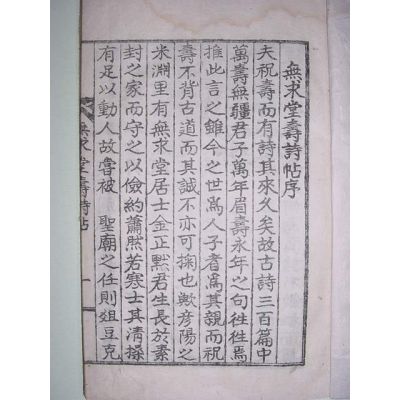 無求堂壽詩帖序
夫祝壽而有詩其來久矣故古詩三百篇中
萬壽無疆君子萬年眉壽永年之句徃徃焉
推此言之雖今之世爲人子者爲其親而祝
壽不背古道而其誠不亦可掬也歟彦陽之
米淵里有無求堂居士金正黙君生長於素
封之家而守之以儉約蕭然若寒士其清操
有足以動人故嘗被 聖廟之任則俎豆克
無求堂壽詩帖 一